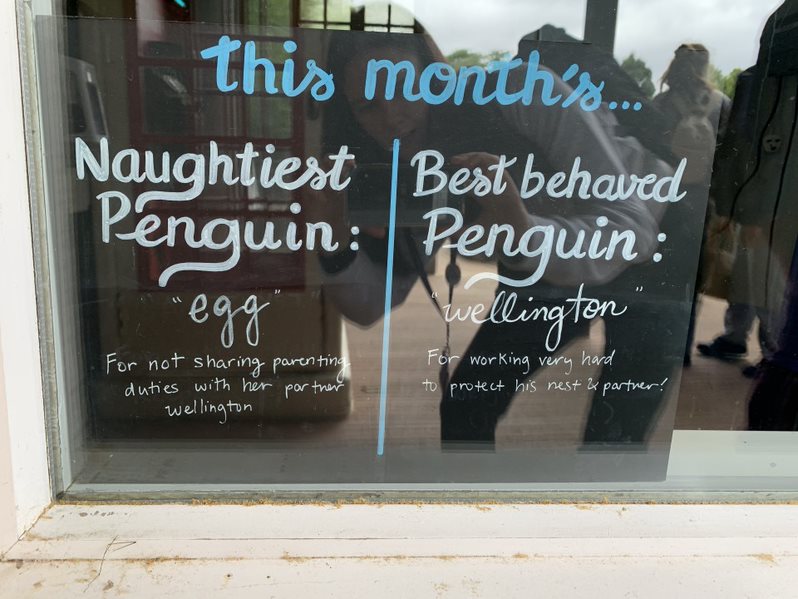 this month's...
Naughtiest
Penguin:
"egg"
For not sharing parenting
duties with her partner
wellington
Best behaved
Penguin:
"wellington"
For working very hard
to protect his nest & partner!